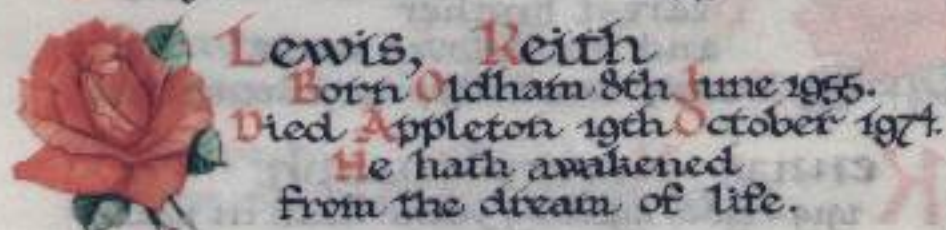 Lewis, Keith
Born Oldham 8th June 1955.
Died Appleton 19th October 1974.
He hath awakened
from the dream of life.